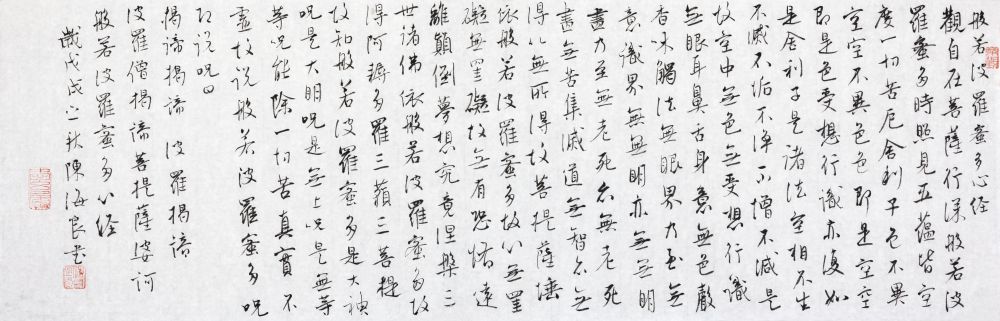 般若波羅蜜多心经
觀自在菩薩行深般若波
羅蜜多時照見五蕴皆空
度一切苦厄舍利子色不異
空空不異色色即是空空
即是色受想行識亦復如
是舍利子是诸法空相不生
不滅不垢不净不增不减是
故空中無色無受想行識
無眼耳鼻舌身意無色聲
香味觸法無眼界乃至無
意識界無無明亦無無明
盡乃至無老死亦無老死
盡無苦集滅道無智亦無
得以無所得故菩提薩埵
依般若波羅蜜多故心無罣
礙無罣礙故無有恐怖遠
離顛倒夢想究竟涅槃三
世诸佛依般若波羅蜜多故
得阿耨多羅三藐三菩提
故知般若波羅蜜多是大神
呪是大明呪是無上呪是無等
等呪能除一切苦真實不
虚故说般若波羅蜜多呪
即说呪曰
揭谛揭谛 波羅揭谛
波羅僧揭谛菩提薩婆訶
般若波羅蜜多心经
歲戊戌之秋陳海良书